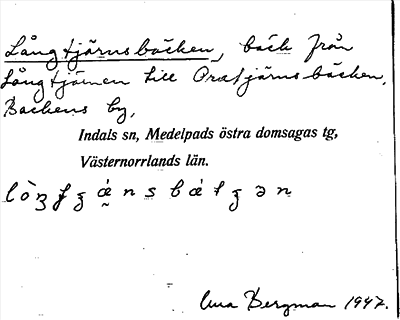 Långtjärnsbäcken, bäck från
Långtjärnen till Oxatjärnsbäcken,
Backens by,
Indals sn, Medelpads östra domsagas tg,
Västernorrlands län.
Bergman 1947.